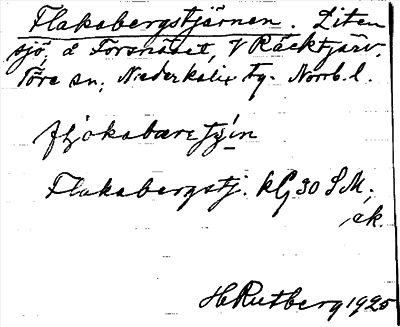 Flakabergstjärnen. Liten
sjö, å Forsnäset, V Räcktjärv.
Töre sn, Nederkalix tg. Norrb. l.
Flakabergstj. kG 30 S.M;
ek.
H Rutberg 1925